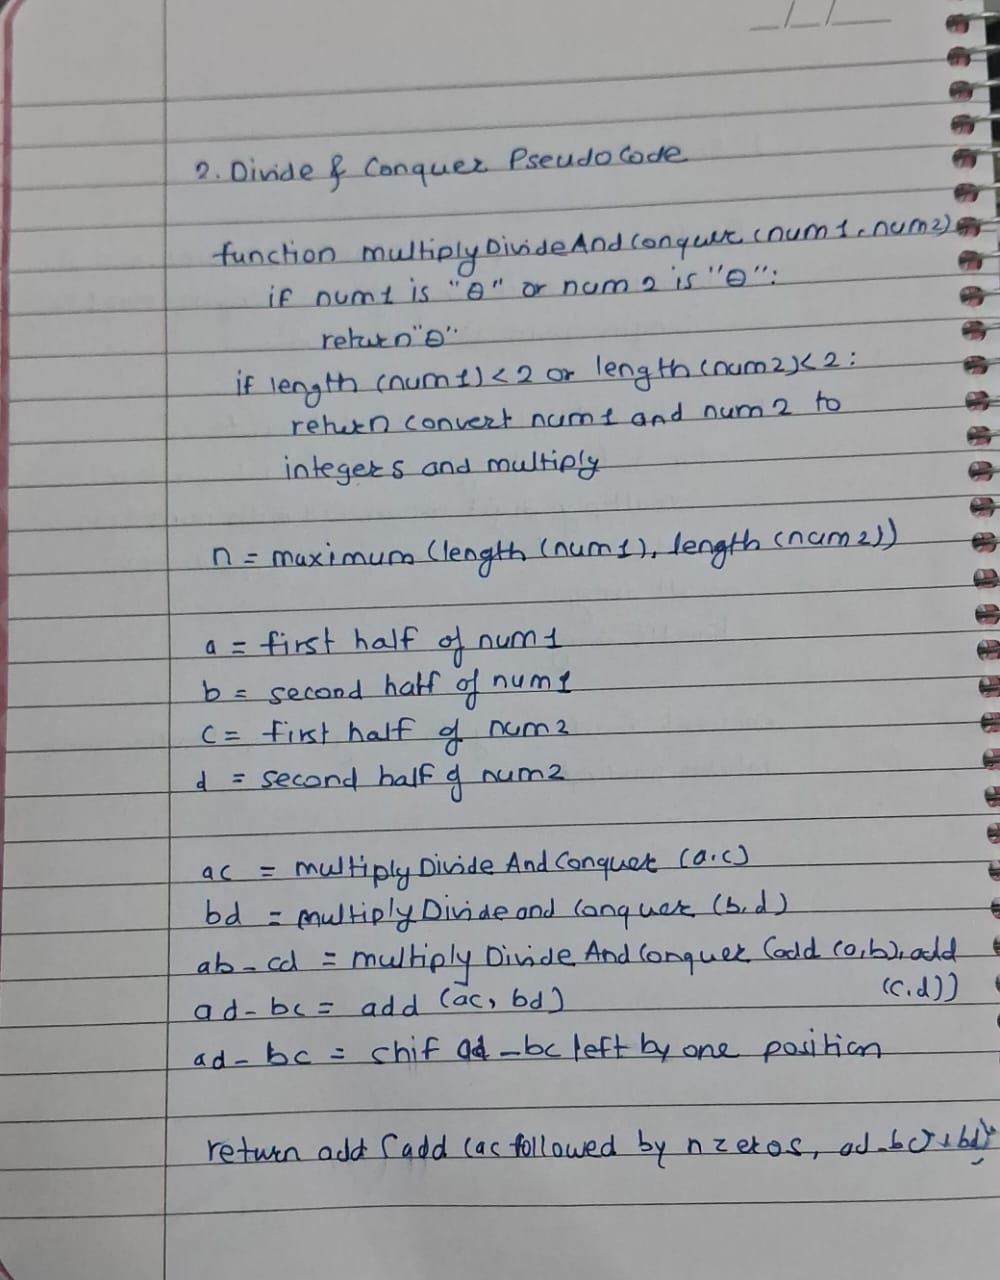 _/_/__
2. Divide & Conquer Pseudocode
function multiplyDivideAndConquer (num1, num2)
if num1 is "0" or num2 is "0":
return "0"
if length (num1) < 2 or length (num2) < 2:
return convert num1 and num2 to
integers and multiply
n = maximum (length (num1), length (num2))
a = first half of num1
b = second half of num1
c = first half of num2
d = second half of num2
ac = multiplyDivide AndConquer (a.c)
bd = multiplyDivideand conquer (b.d)
ab-cd = multiply Divide And Conquer (add (a,b), add
(c.d))
ad-bc = add (ac, bd)
ad-bc = shif ad-bc left by one position
return add (add (ac followed by n zeros, ad-bc), bd)